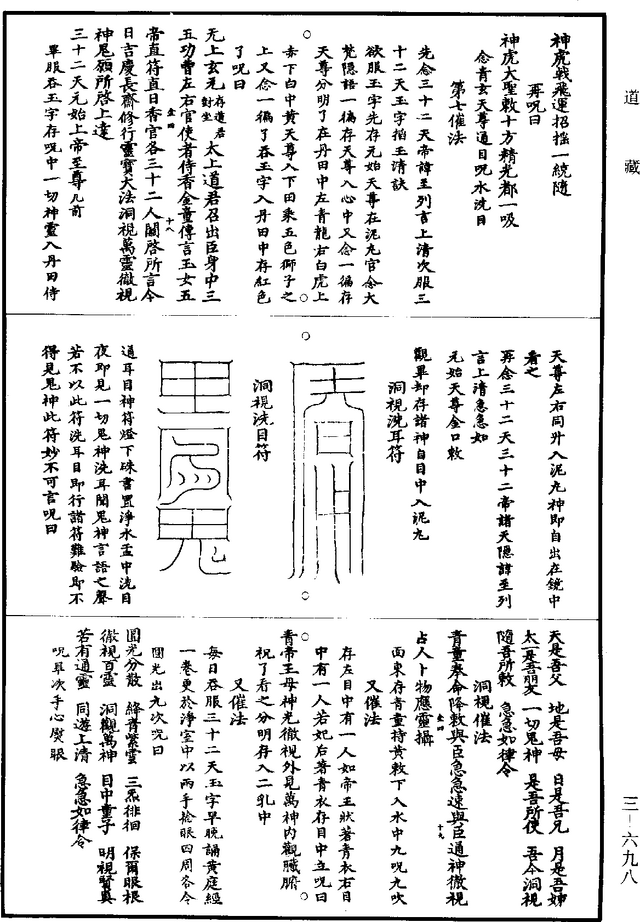 道藏
神虎戟飛運招搖一統隨
再呪曰
神虎大聖敕十方精光都一吸
念青玄天尊通目呪水洗目
第七催法
先念三十二天帝諱至列言上清次服三
十二天玉字掐玉清訣
欲服玉字先存元始天尊在泥丸宮念大
梵隱語一徧存天尊入心中又念一徧存
天尊分明了在丹田中左青龍右白虎上
赤下白中黃天尊入下田乘五色獅子之
上又念一徧了吞玉字入丹田中存紅色
了呪曰
无上玄元存道君對坐太上道君召出臣身中三
五功曹左右官使者侍香金童傳言玉女五
帝直符直日香官各三十二人關啓所言今
日言慶長齋修行靈寳大法洞視萬靈徹視
神鬼願所啓上達
三十二天元始上帝至尊几前
畢服吞玉字存呪中一切神靈入丹田侍
天尊左右同升入泥丸神即自出在鏡中
看之
再念三十二天三十二帝諸天隱諱至列
言上清急急如
元始天尊金口敕
觀畢却存諸神自目中入泥丸
洞視洗耳符
洞視洗目符
通耳目神符燈下硃書置淨水盂中洗目
夜即見一切鬼神洗耳聞鬼神言語之聲
若不以此符洗耳目即行諸符難驗即不
得見鬼神此符妙不可言呪曰
天是吾父 地是吾母 日是吾兄 月是吾姉
太一是吾朋友 一切鬼神 是吾所使 吾今洞視
隨吾所敕 急急如律令
洞視催法
青童奉命降敕與臣急急速與臣通神徹視
占人卜物應靈攝
面東存青童持黃敕下入水中九呪九吹
又催法
存左目中有一人如帝王狀著青衣右目
中有一人若妃后著青衣存目中立呪曰
青帝王母神光徹視外見萬神內觀臟腑
祝了看之分明存入二乳中
又催法
每日吞服三十二天玉字早晚誦黃庭經
一卷更於淨室中以兩手捻眼四周各令
圓光出九次呪曰
圓光分散 絳青紫雲 三炁徘徊 保爾眼根
徹視百靈 洞觀萬神 目中童子 明視賢真
若有通靈 同遊上清 急急如律令
呪畢次手心熨眼
三－六九八